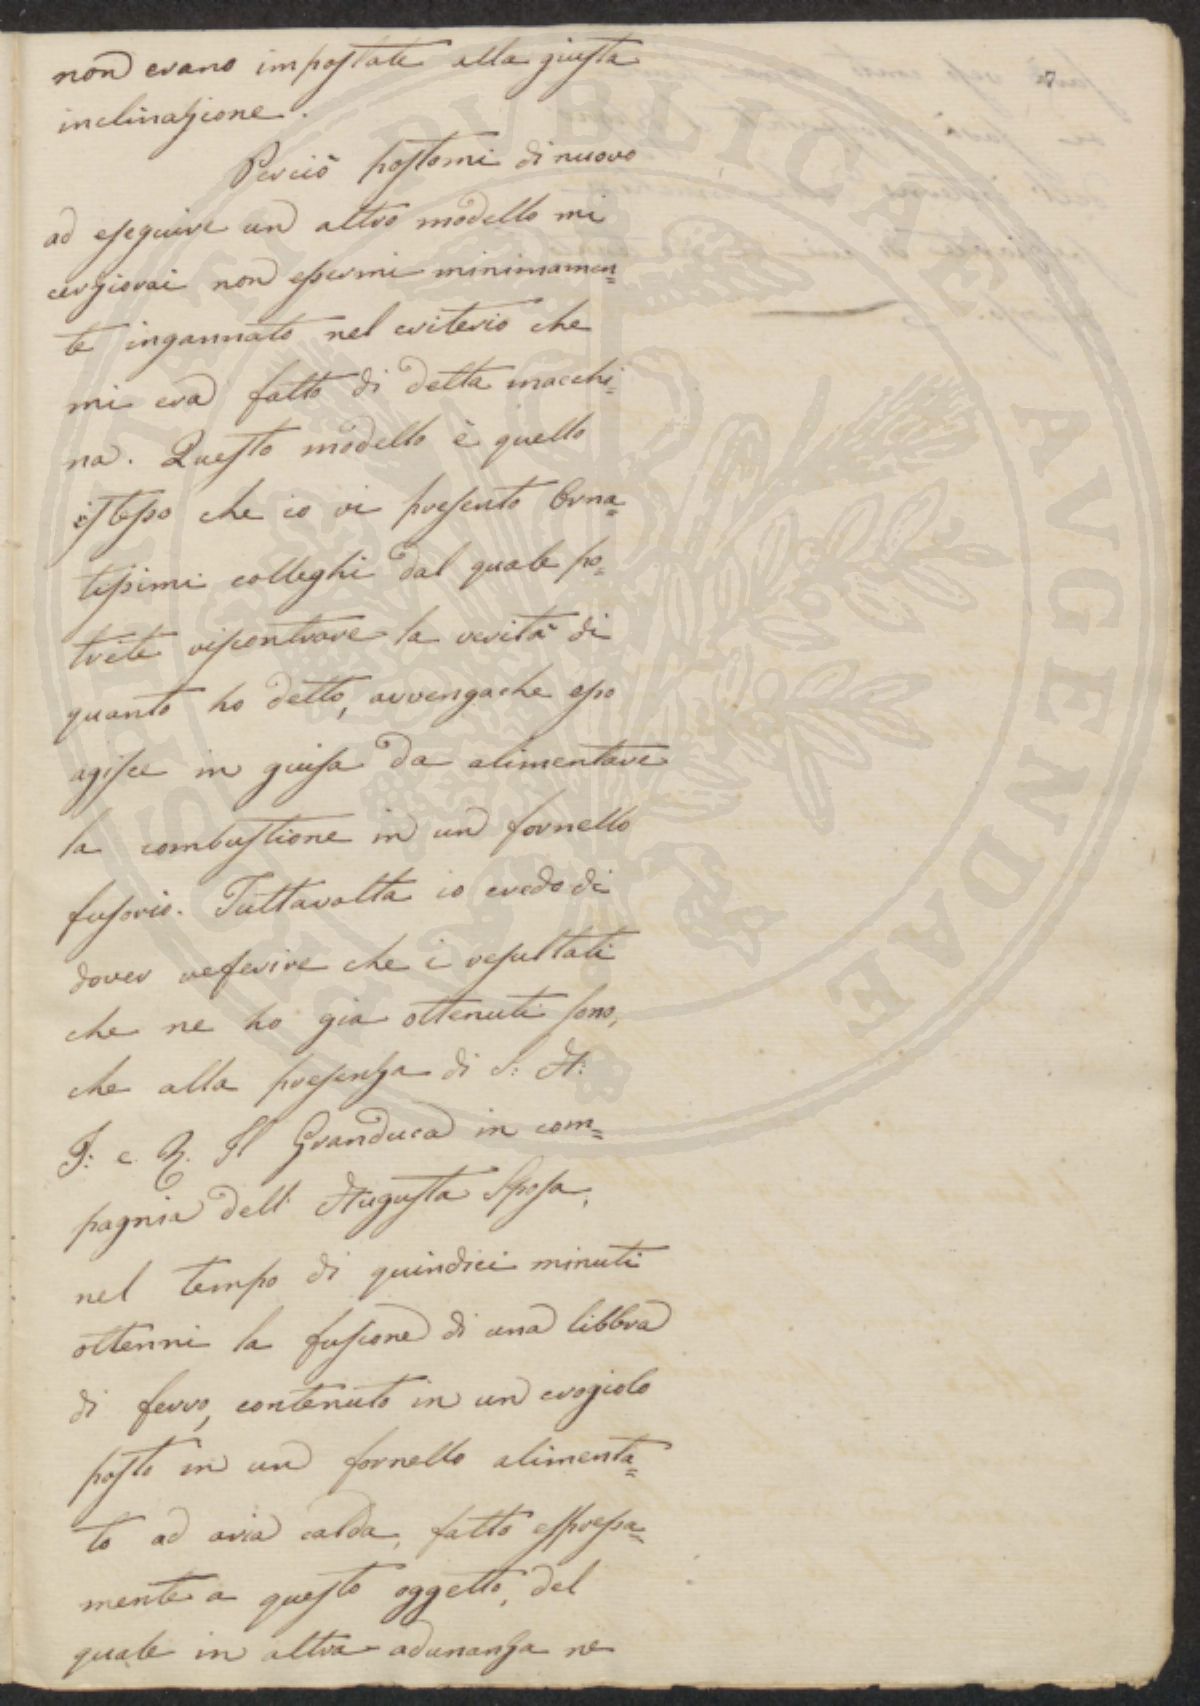 7
non erano impostate alla giusta
inclinazione.
Perciò postomi di nuovo
ad eseguire un altro modello mi
cerziorai non essermi minimamen=
te ingannato nel criterio che
mi era fatto di detta macchi=
na. Questo modello è quello
istesso che io vi presento Orna=
tissimi colleghi dal quale po=
trete riscontrare la verità di
quanto ho detto, avvengache esso
agisce in guisa da alimentare
la combustione in un fornello
fusorio. Tuttavolta io credo di
dover referire che i resultati
che ne ho gia ottenuti sono,
che alla presenza di S: A:
I: e R. Il Granduca in com=
pagnia dell' Augusta Sposa,
nel tempo di quindici minuti
ottenni la fusione di una libbra
di ferro, contenuto in un crogiolo
posto in un fornello alimenta=
to ad aria calda, fatto espressa=
mente a questo oggetto, del
quale in altra adunanza ne
PUBLICAE AUGENDAE